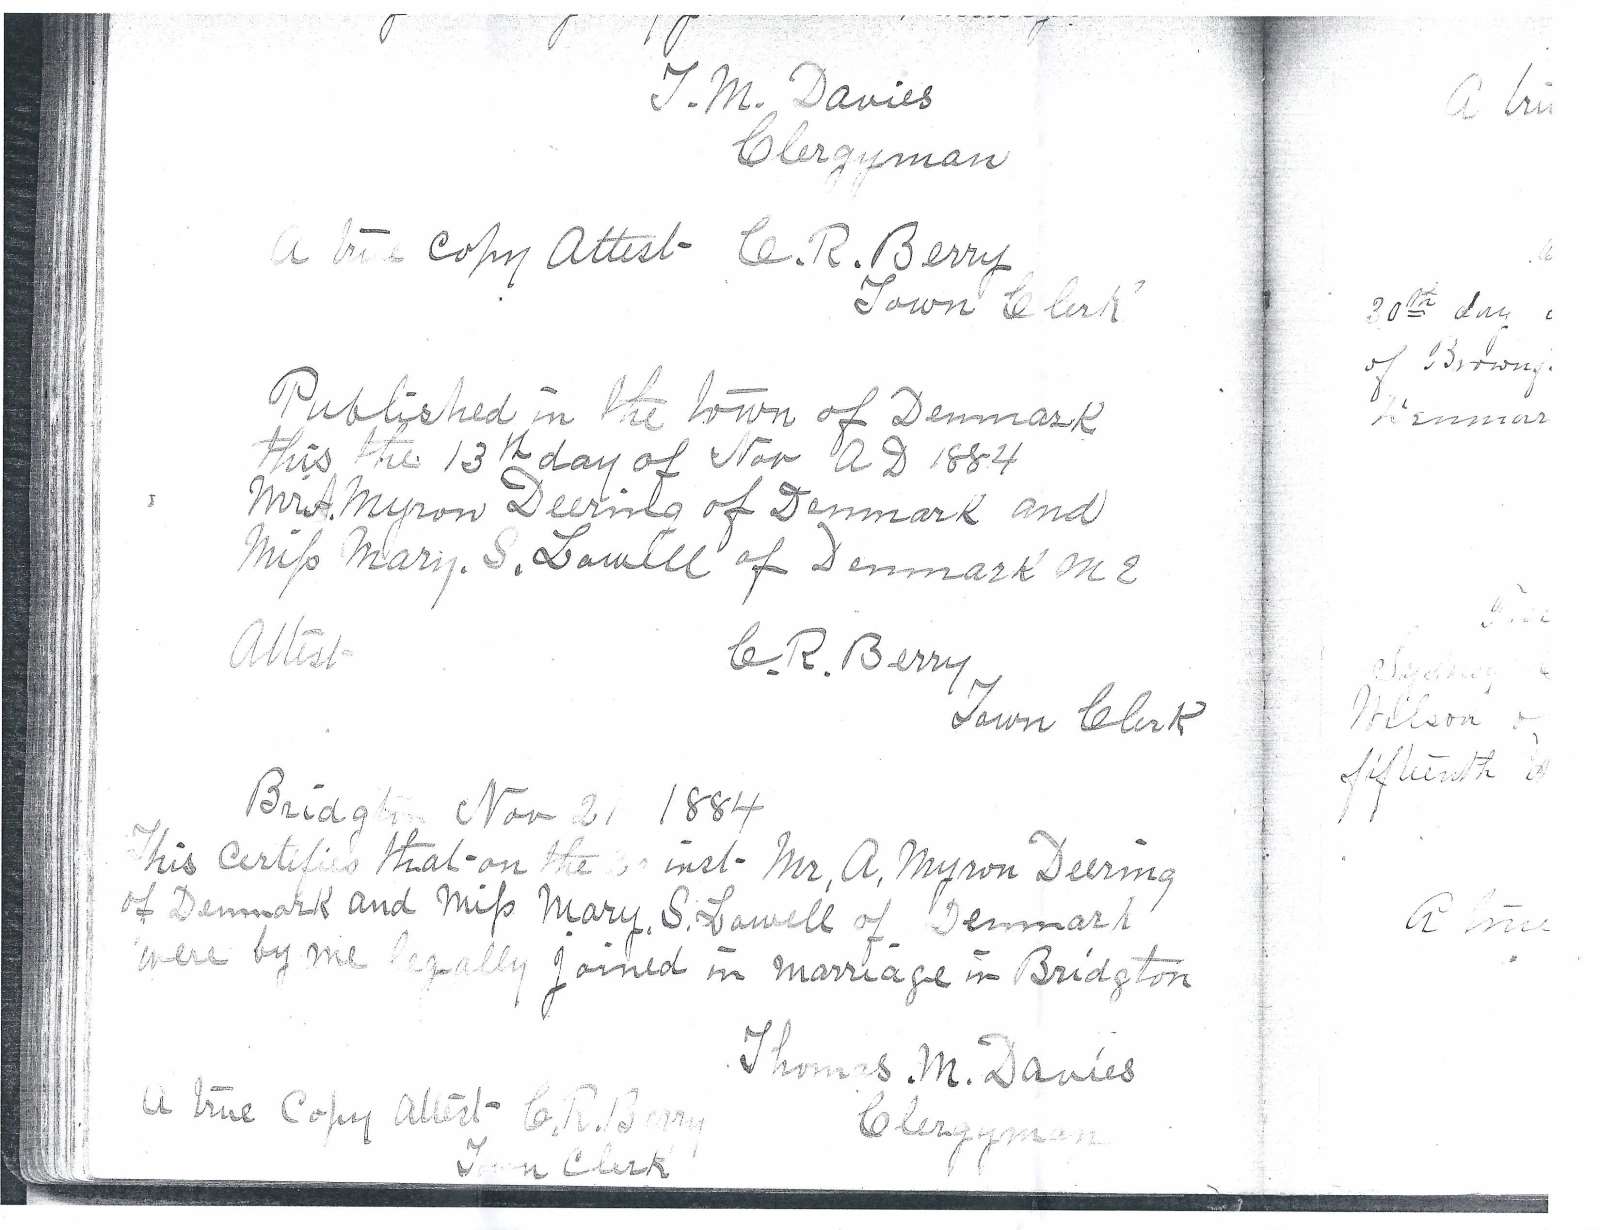 T. M. Davies
Clergyman
A true copy Attest C. R. Berry
Town Clerk
Published in the town of Denmark
this the 13th day of Nov AD 1884
Mr A. Myron Deering of Denmark and
Miss Mary. S. Lowell of Denmark
Attest C. R. Berry
Town Clerk
Bridgton Nov 21 1884
This certifies that on the inst Mr. A. Myron Deering
of Denmark and Miss Mary. S. Lowell of Denmark
were by me legally joined in marriage in Bridgton
Thomas. M. Davies
Clergyman
A true Copy Attest C. R. Berry
Town Clerk
A
day
of
Wilson
fifteenth
A